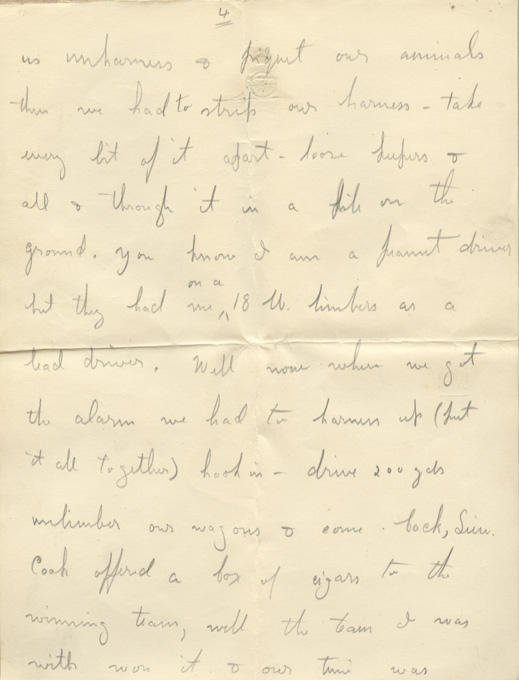 4
us unharness & piquet our animals
then we had to strip our harness - take
every bit of it apart - loose keepers &
all & through it in a pile on the
ground. You know I am a peanut driver
but they had me on a 18 lb. limbers as a
lead driver. Well now when we got
the alarm we had to harness up (put
it all together) hook in - drive 200 yds
unlimber our wagons & come back, Lieu.
Cook offered a box of cigars to the
winning team, well the team I was
with won it & our time was